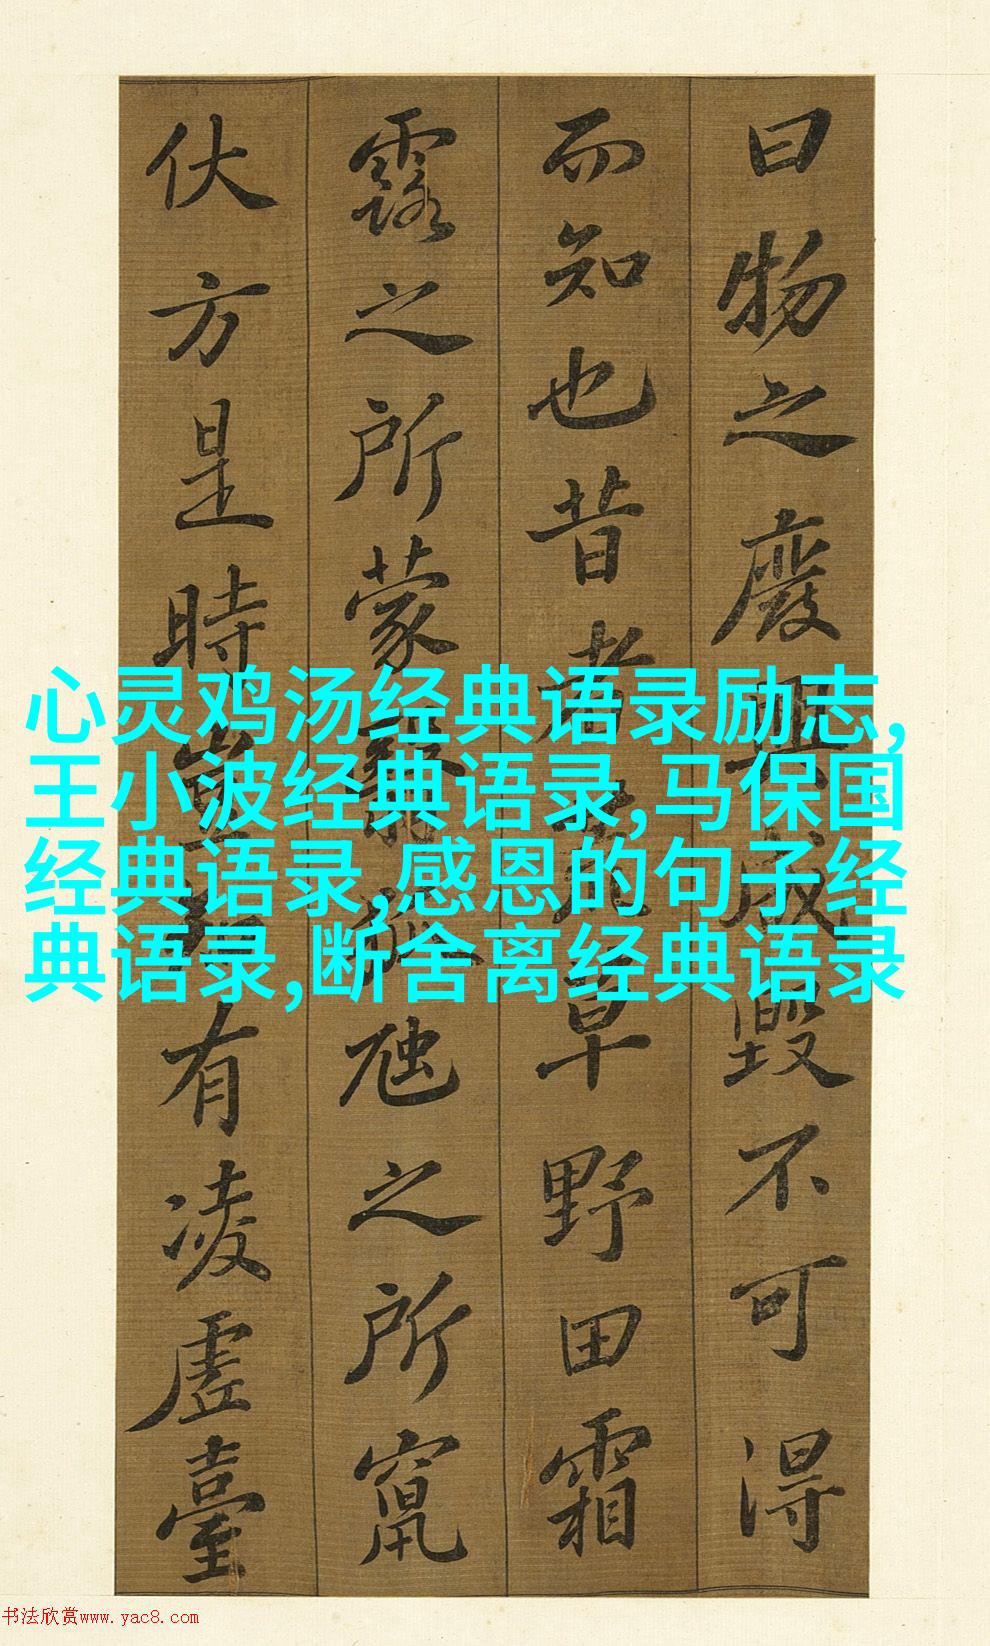 曰物之廢興成毀不可得
而知也昔者荒草野田霜
露之所蒙翳狐虺之所竄
伏方是時豈知有凌虛臺
心灵鸡汤经典语录励志,
王小波经典语录,马保国
经典语录,感恩的句子经
典语录,断舍离经典语录
书法欣赏www.yac8.com